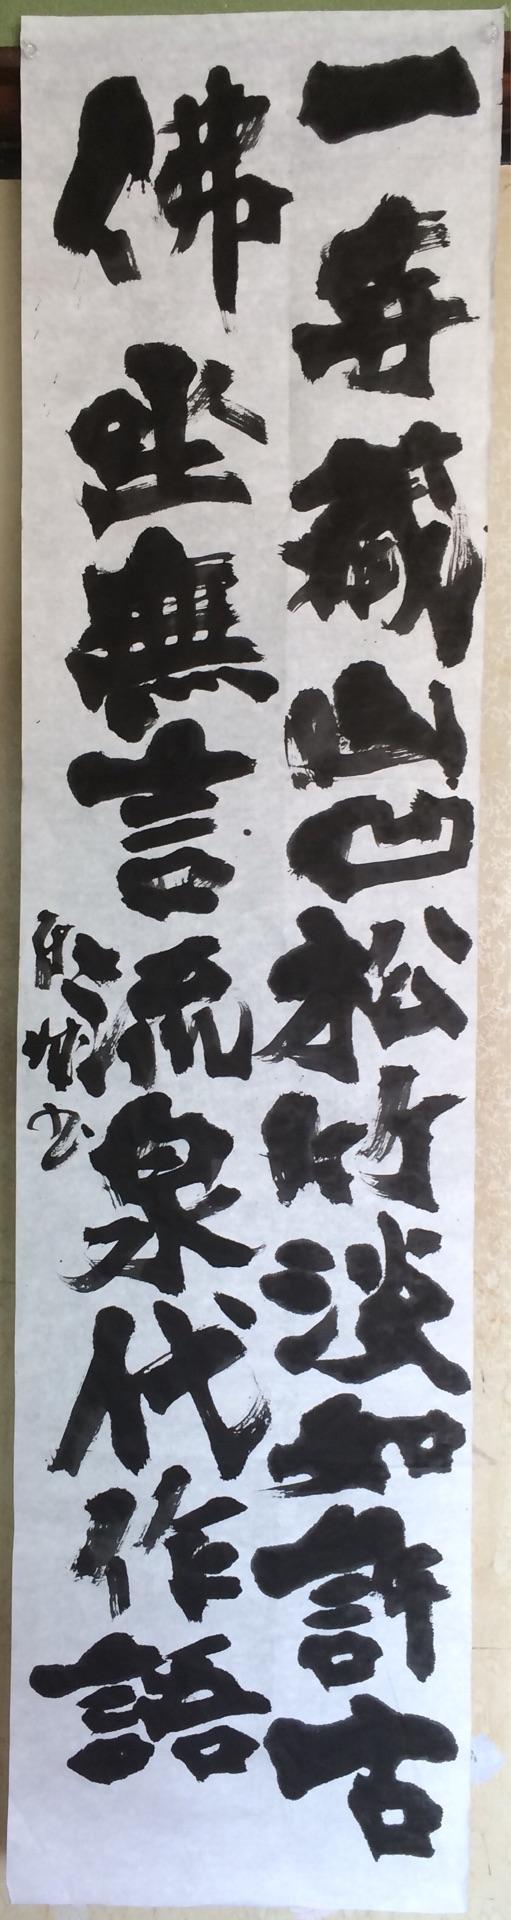 一寺藏山凹松竹淡如許古
佛坐無言流泉代作語
書